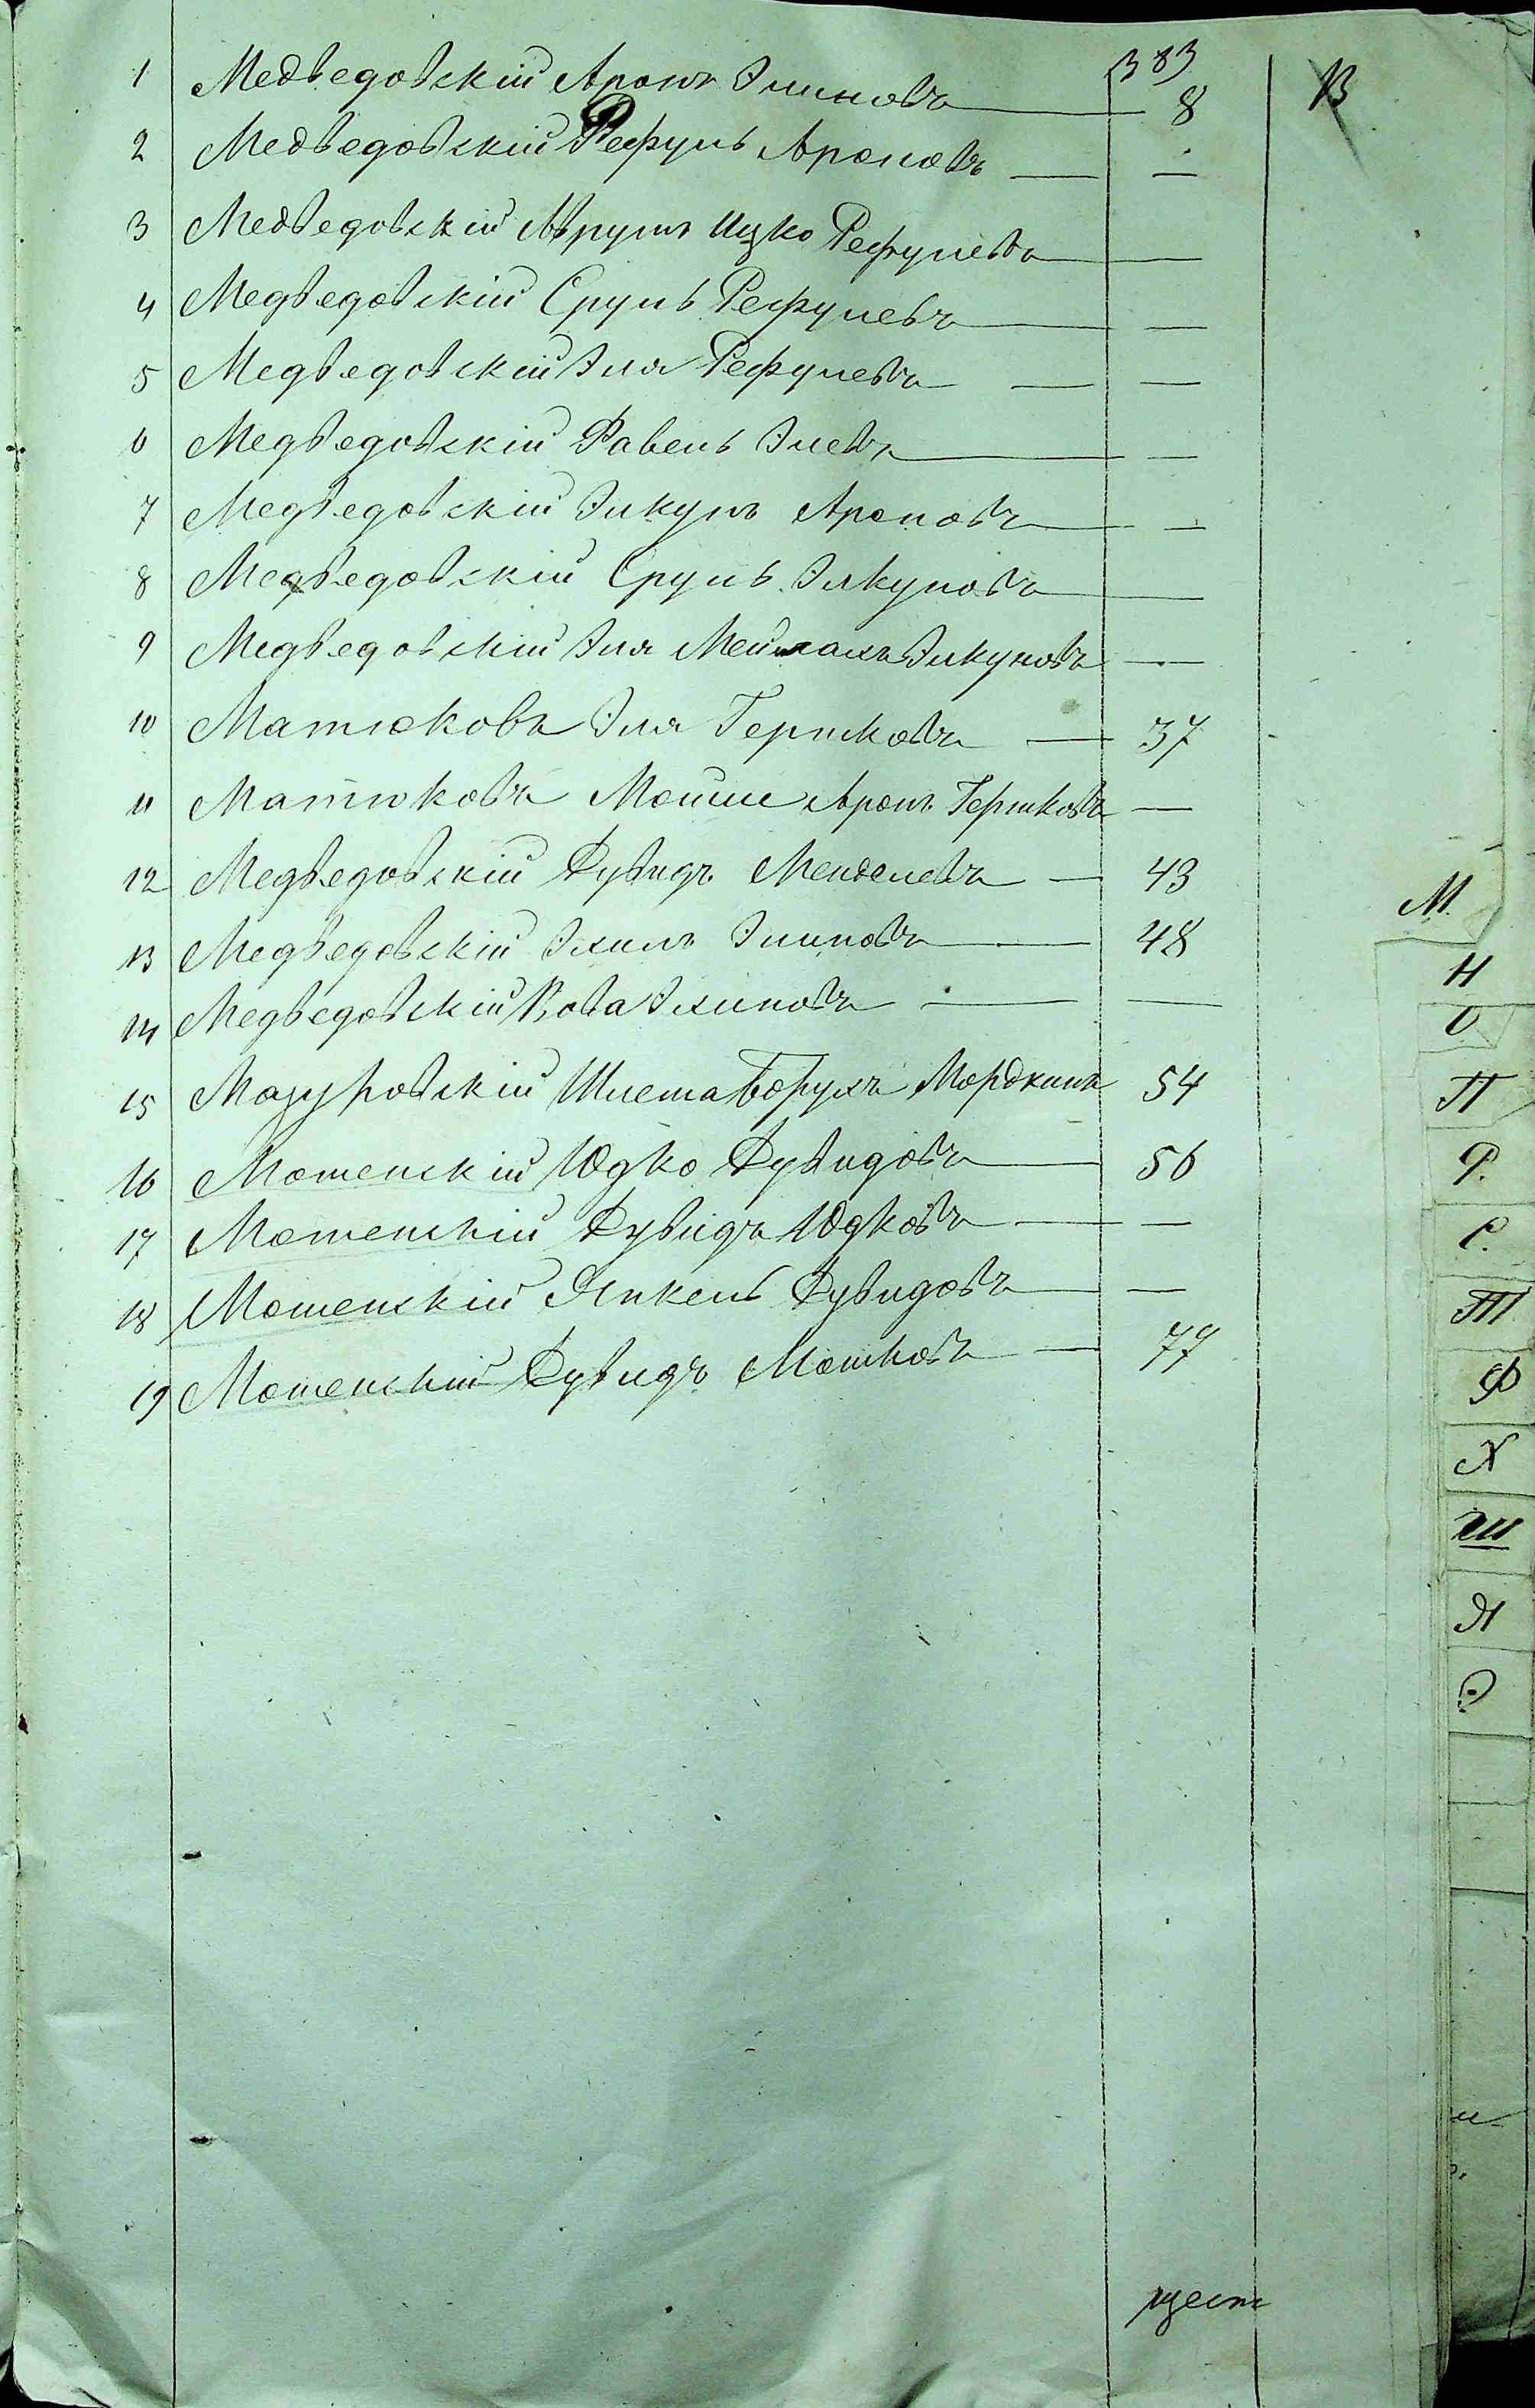 383
В
1 Медведовскій Аронъ Элиновъ 8
2 Медведовскій Рефуль Ароновъ —
3 Медведовскій Аврумъ Ицко Рефулевъ —
4 Медведовскій Сруль Рефулевъ —
5 Медведовскій Эля Рефулевъ —
6 Медведовскій Равель Элевъ —
7 Медведовскій Элкунъ Ароновъ —
8 Медведовскій Сруль Элкуновъ —
9 Медведовскій Эля Мейлахъ Элкуновъ —
10 Матюковъ Эля Гершковъ — 37
11 Матюковъ Мойше Аронъ Гершковъ —
12 Медведовскій Дувидъ Менделевъ — 43
13 Медведовскій Элиновъ 48
14 Медведовскій —
15 Мазуровскій Шлема Борухъ Мордкинъ 54
16 Мошенскій Юдко Дувидовъ 56
17 Мошенскій Дувидъ Юдковъ —
18 Мошенскій Янкель Дувидовъ —
19 Мошенскій Дувидъ Мошковъ — 77
М.
Н
О
П
Р.
С.
Т
Ф
Х
Ш
Я
Э